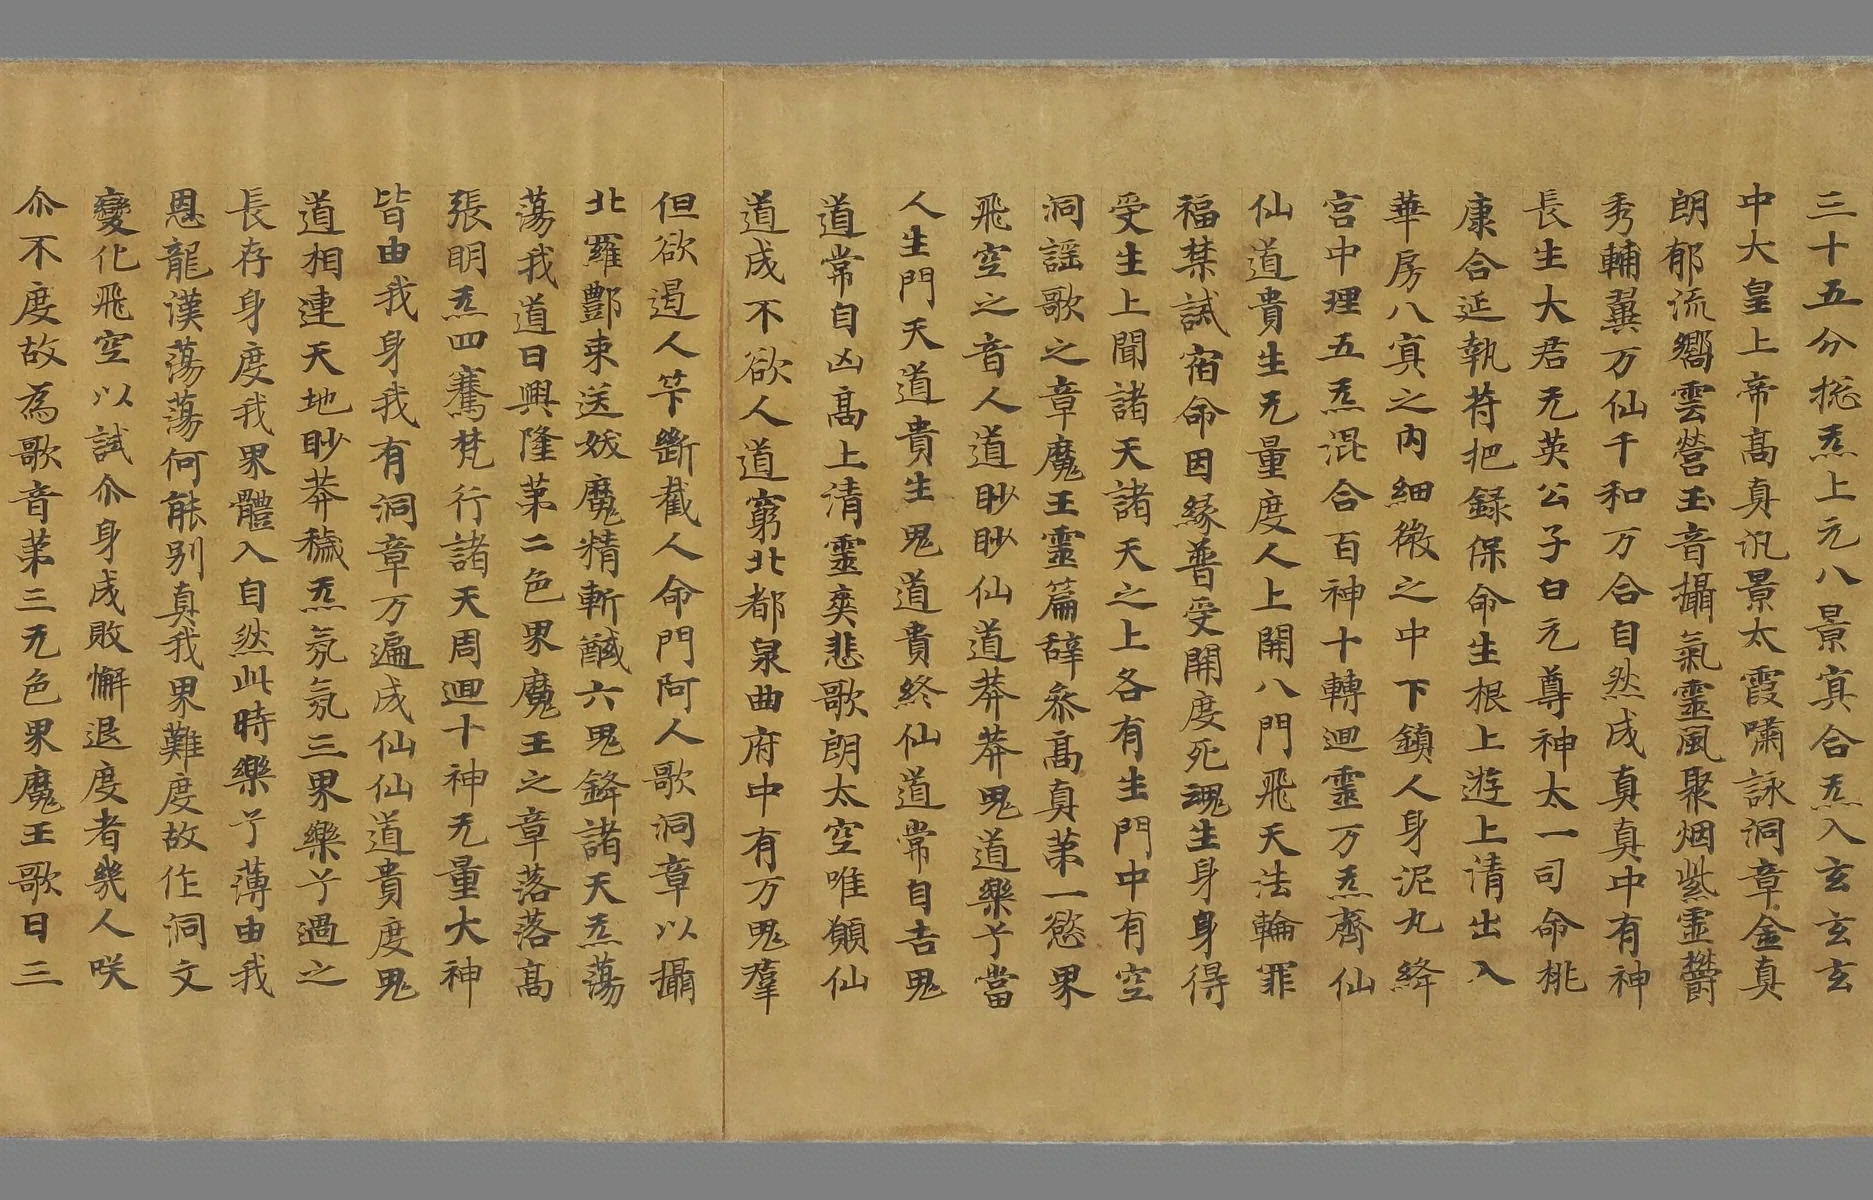 三十五分捴炁上元八景冥合炁入玄玄玄
中大皇上帝髙真汎景太霞嘯詠洞章金真
朗郁流嚮雲營玉音攝氣靈風聚烟紫虛欝
秀輔翼万仙千和万合自然成真真中有神
長生大君无英公子白元尊神太一司命桃
康合延執苻把録保命生根上遊上清出入
華房八冥之内細微之中下鎮人身泥丸絳
宮中理五炁混合百神十轉迴靈万炁齊仙
仙道貴生无量度人上開八門飛天法輪罪
福禁試宿命因緣普受開度死魂生身身得
受生上聞諸天諸天之上各有生門中有空
洞謡歌之章魔王靈篇辝叅髙真苐一慾界
飛空之音人道眇眇仙道莽莽鬼道樂兮當
人生門天道貴生鬼道貴終仙道常自吉鬼
道常自凶髙上清靈㷎悲歌朗太空唯願仙
道成不欲人道窮北都泉曲府中有万鬼羣
但欲遏人竿斷截人命門阿人歌洞章以攝
北羅酆束送妖魔精斬馘六鬼鋒諸天炁蕩
蕩我道日興隆苐二色界魔王之章落落髙
張明炁四騫梵行諸天周迴十神无量大神
皆由我身我有洞章万遍成仙仙道貴度鬼
道相連天地眇莽穢炁氛氛三界樂兮過之
長存身度我界體入自然此時樂兮薄由我
恩龍漢蕩蕩何能别真我界難度故作洞文
變化飛空以試尒身成敗懈退度者幾人咲
尒不度故為歌音苐三无色界魔王歌曰三